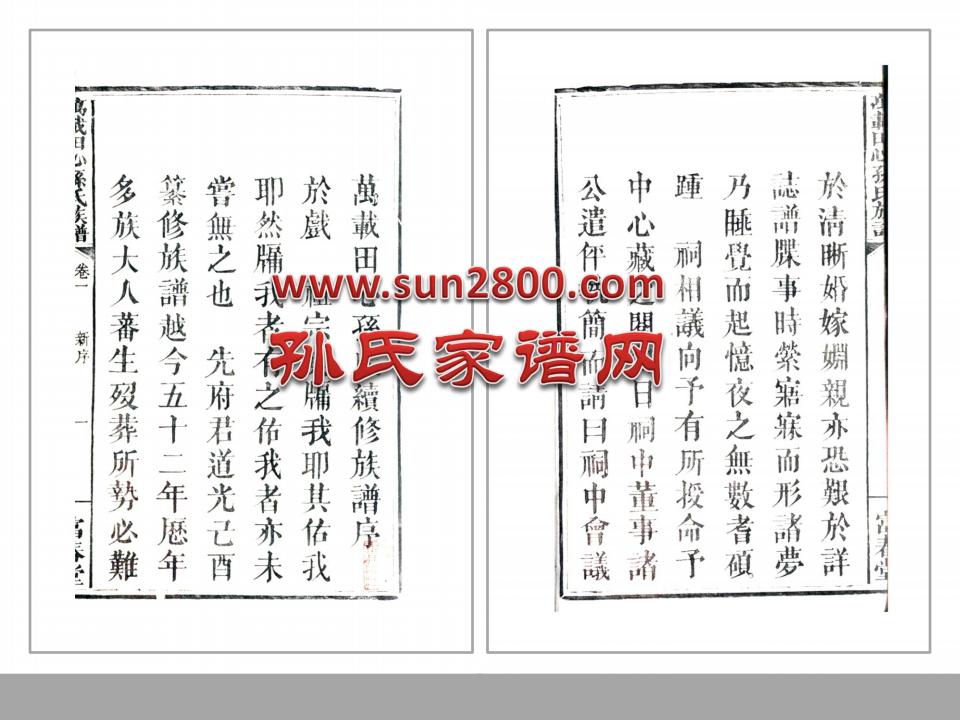 萬載田心孫氏續修族譜序
於戲 祖宗牖我耶其佑我
耶然牖我者有之佑我者亦未
嘗無之也 先府君道光己酉
纂修族譜越今五十二年歷年
多族大人蕃生歿葬所勢必難
萬載田心孫氏族譜
卷一
新序
一
富春堂
於清晰婚嫁婣親亦恐艱於詳
誌譜牒事時縈寤寐而形諸夢
乃睡覺而起憶夜之無數耆碩
踵 祠相議向予有所授命予
中心藏之 日祠中董事諸
公遣伻 簡而請曰祠中會議
萬載田心孫氏族譜
富春堂
www.sun2800.com
孙氏家谱网